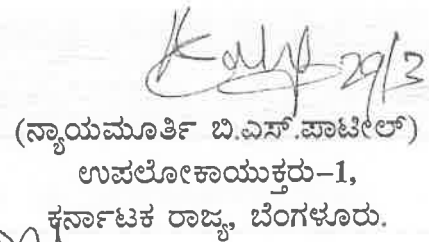 29/3
(ನ್ಯಾಯಮೂರ್ತಿ ಬಿ.ಎಸ್.ಪಾಟೀಲ್)
ಉಪಲೋಕಾಯುಕ್ತರು-1,
ಕರ್ನಾಟಕ ರಾಜ್ಯ, ಬೆಂಗಳೂರು.